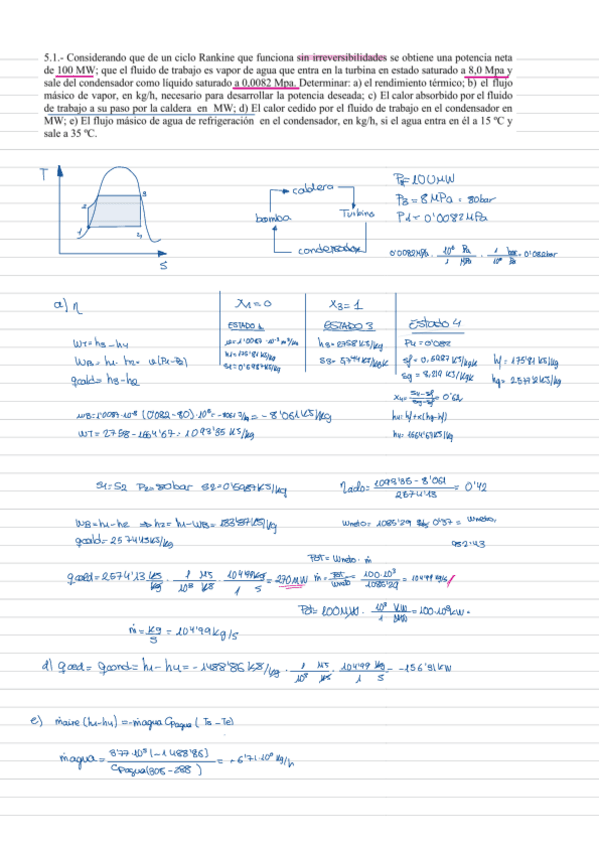 5.1.- Considerando que de un ciclo Rankine que funciona sin irreversibilidades se obtiene una potencia neta
de 100 MW; que el fluido de trabajo es vapor de agua que entra en la turbina en estado saturado a 8,0 Mpa y
sale del condensador como líquido saturado a 0,0082 Mpa. Determinar: a) el rendimiento térmico; b) el flujo
másico de vapor, en kg/h, necesario para desarrollar la potencia deseada; c) El calor absorbido por el fluido
de trabajo a su paso por la caldera en MW; d) El calor cedido por el fluido de trabajo en el condensador en
MW; e) El flujo másico de agua de refrigeración en el condensador, en kg/h, si el agua entra en él a 15 ºC y
sale a 35 ºC.
T
2 3
1 4
S
caldera
bomba Turbina
condensador
P = 100MW
P3 = 8 MPa = 80bar
P1 = 0'0082MPa
a) η
X1=0 X3=1
ESTADO 1 ESTADO 3 Estado 4
WT = h3 - h4
h3=2758KJ/kg
P4=0'082
sf=0,5987KJ/kgK
hf=175'81KJ/kg
sg=8,219KJ/kgK
WB = h1 - h2 = v(P1-P2)
qcald = h3-h2
h4=hf+x(hg-hf)
WB=1'0087·10⁻³ (0'082-80)·10⁵ = = -8'061KJ/kg
WT=2758-1664'67=1093'35KJ/kg
S1=S2 P2=80bar S2=0'5987KJ/kg
ηciclo= 1093'35 - 8'061 / 2574'13 = 0'42
WB=h1-h2 ⇒ h2=h1-WB=183'87KJ/kg
qcald=2574'13KJ/kg
Pot = Wneto · ṁ
qcald=2574'13 KJ/kg · 1 MJ/10³ KJ · 104'99kg/1 s = 270MW
ṁ = Pot/Wneto = 100·10³/1085'29 = 104'99kg/s
Pot=100MW · 10³ KW/1 MW = 100·10³KW
ṁ = kg/s = 104'99kg/s
d) qced= qcond= h1-h4=-1488'86KJ/kg · 1 MJ/10³ KJ · 104'99 kg/1 s = -156'31KW
e) ṁaire (h1-h4) = -ṁagua Cpagua (Ts - Te)
ṁagua = 3'77·10⁵ (-1488'86) / Cpagua(308-288) = -6'71·10⁶ kg/h